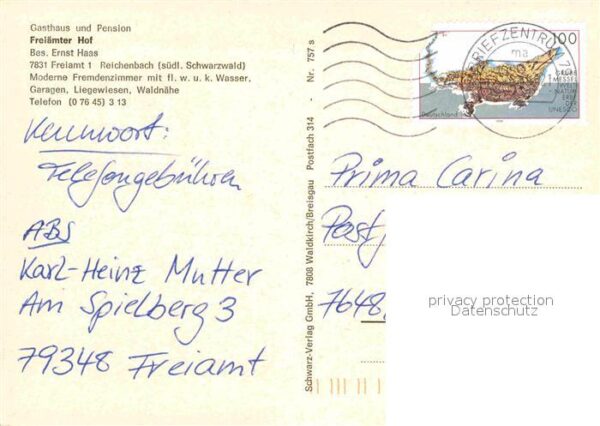 Gasthaus und Pension
Freiämter Hof
Bes. Ernst Haas
7831 Freiamt 1 Reichenbach (südl. Schwarzwald)
Moderne Fremdenzimmer mit fl. w. u. k. Wasser,
Garagen, Liegewiesen, Waldnähe
Telefon (0 76 45) 3 13
Kennwort:
Telefongebühren
ABS
Karl-Heinz Mutter
Am Spielberg 3
79348 Freiamt
Schwarz-Verlag GmbH, 7808 Waldkirch/Breisgau Postfach 314 - Nr. 757 s
BRIEFZENTRUM
ma
100
GRUBE
MESSEL
WELT-
NATUR-
ERBE
DER
UNESCO
Deutschland
Prima Carina
Post
7648
privacy protection
Datenschutz